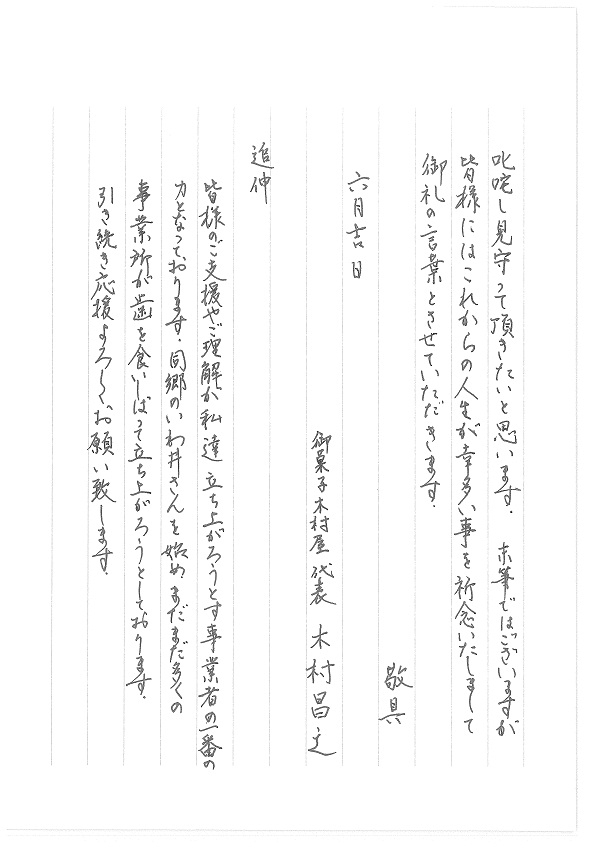 叱咤し見守って頂きたいと思います。 末筆ではございますが
皆様にはこれからの人生が幸多い事を祈念いたしまして
御礼の言葉とさせていただきます。
敬具
六月吉日
御菓子木村屋 代表 木村昌之
追伸
皆様のご支援やご理解が私達立ち上がろうとす事業者の一番の
力となっております。同郷のいわ井さんを始めまだまだ多くの
事業所が歯を食いしばって立ち上がろうとしております。
引き続き応援よろしくお願い致します。